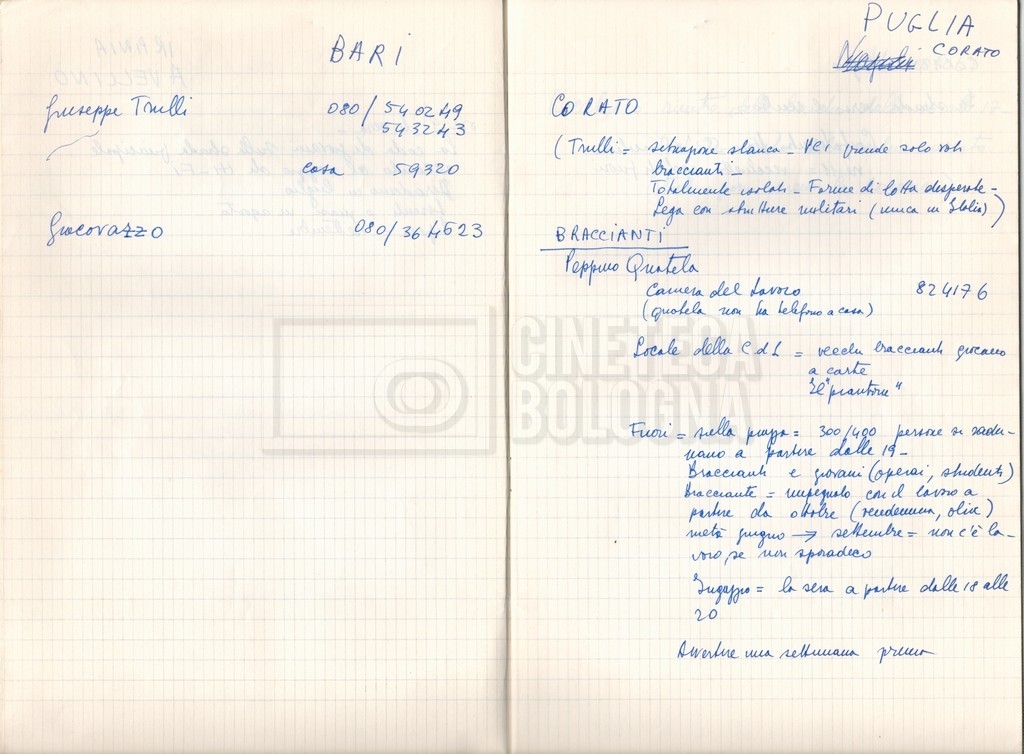 BARI
Giuseppe Trulli 080/540249
543243
casa 59320
Giacovazzo 080/364523
PUGLIA
CORATO
CORATO
(Trulli = situazione stanca - PCI prende solo voti
braccianti -
Totalmente isolati - Forme di lotta disperate -
Lega con strutture militari (unica in Italia))
BRACCIANTI
Peppino Quatela
Camera del Lavoro 824176
(Quatela non ha telefono a casa)
Locale della CdL = vecchi braccianti giocano
a carte
Il "piantone"
Fuori = nella piazza = 300/400 persone si radu-
nano a partire dalle 19 -
Braccianti e giovani (operai, studenti)
Bracciante = impegnato con il lavoro a
partire da ottobre (vendemmia, olive)
metà giugno → settembre = non c'è la-
voro, se non sporadico
Ingaggio = la sera a partire dalle 18 alle
20
Avvertire una settimana prima
CINETECA
BOLOGNA